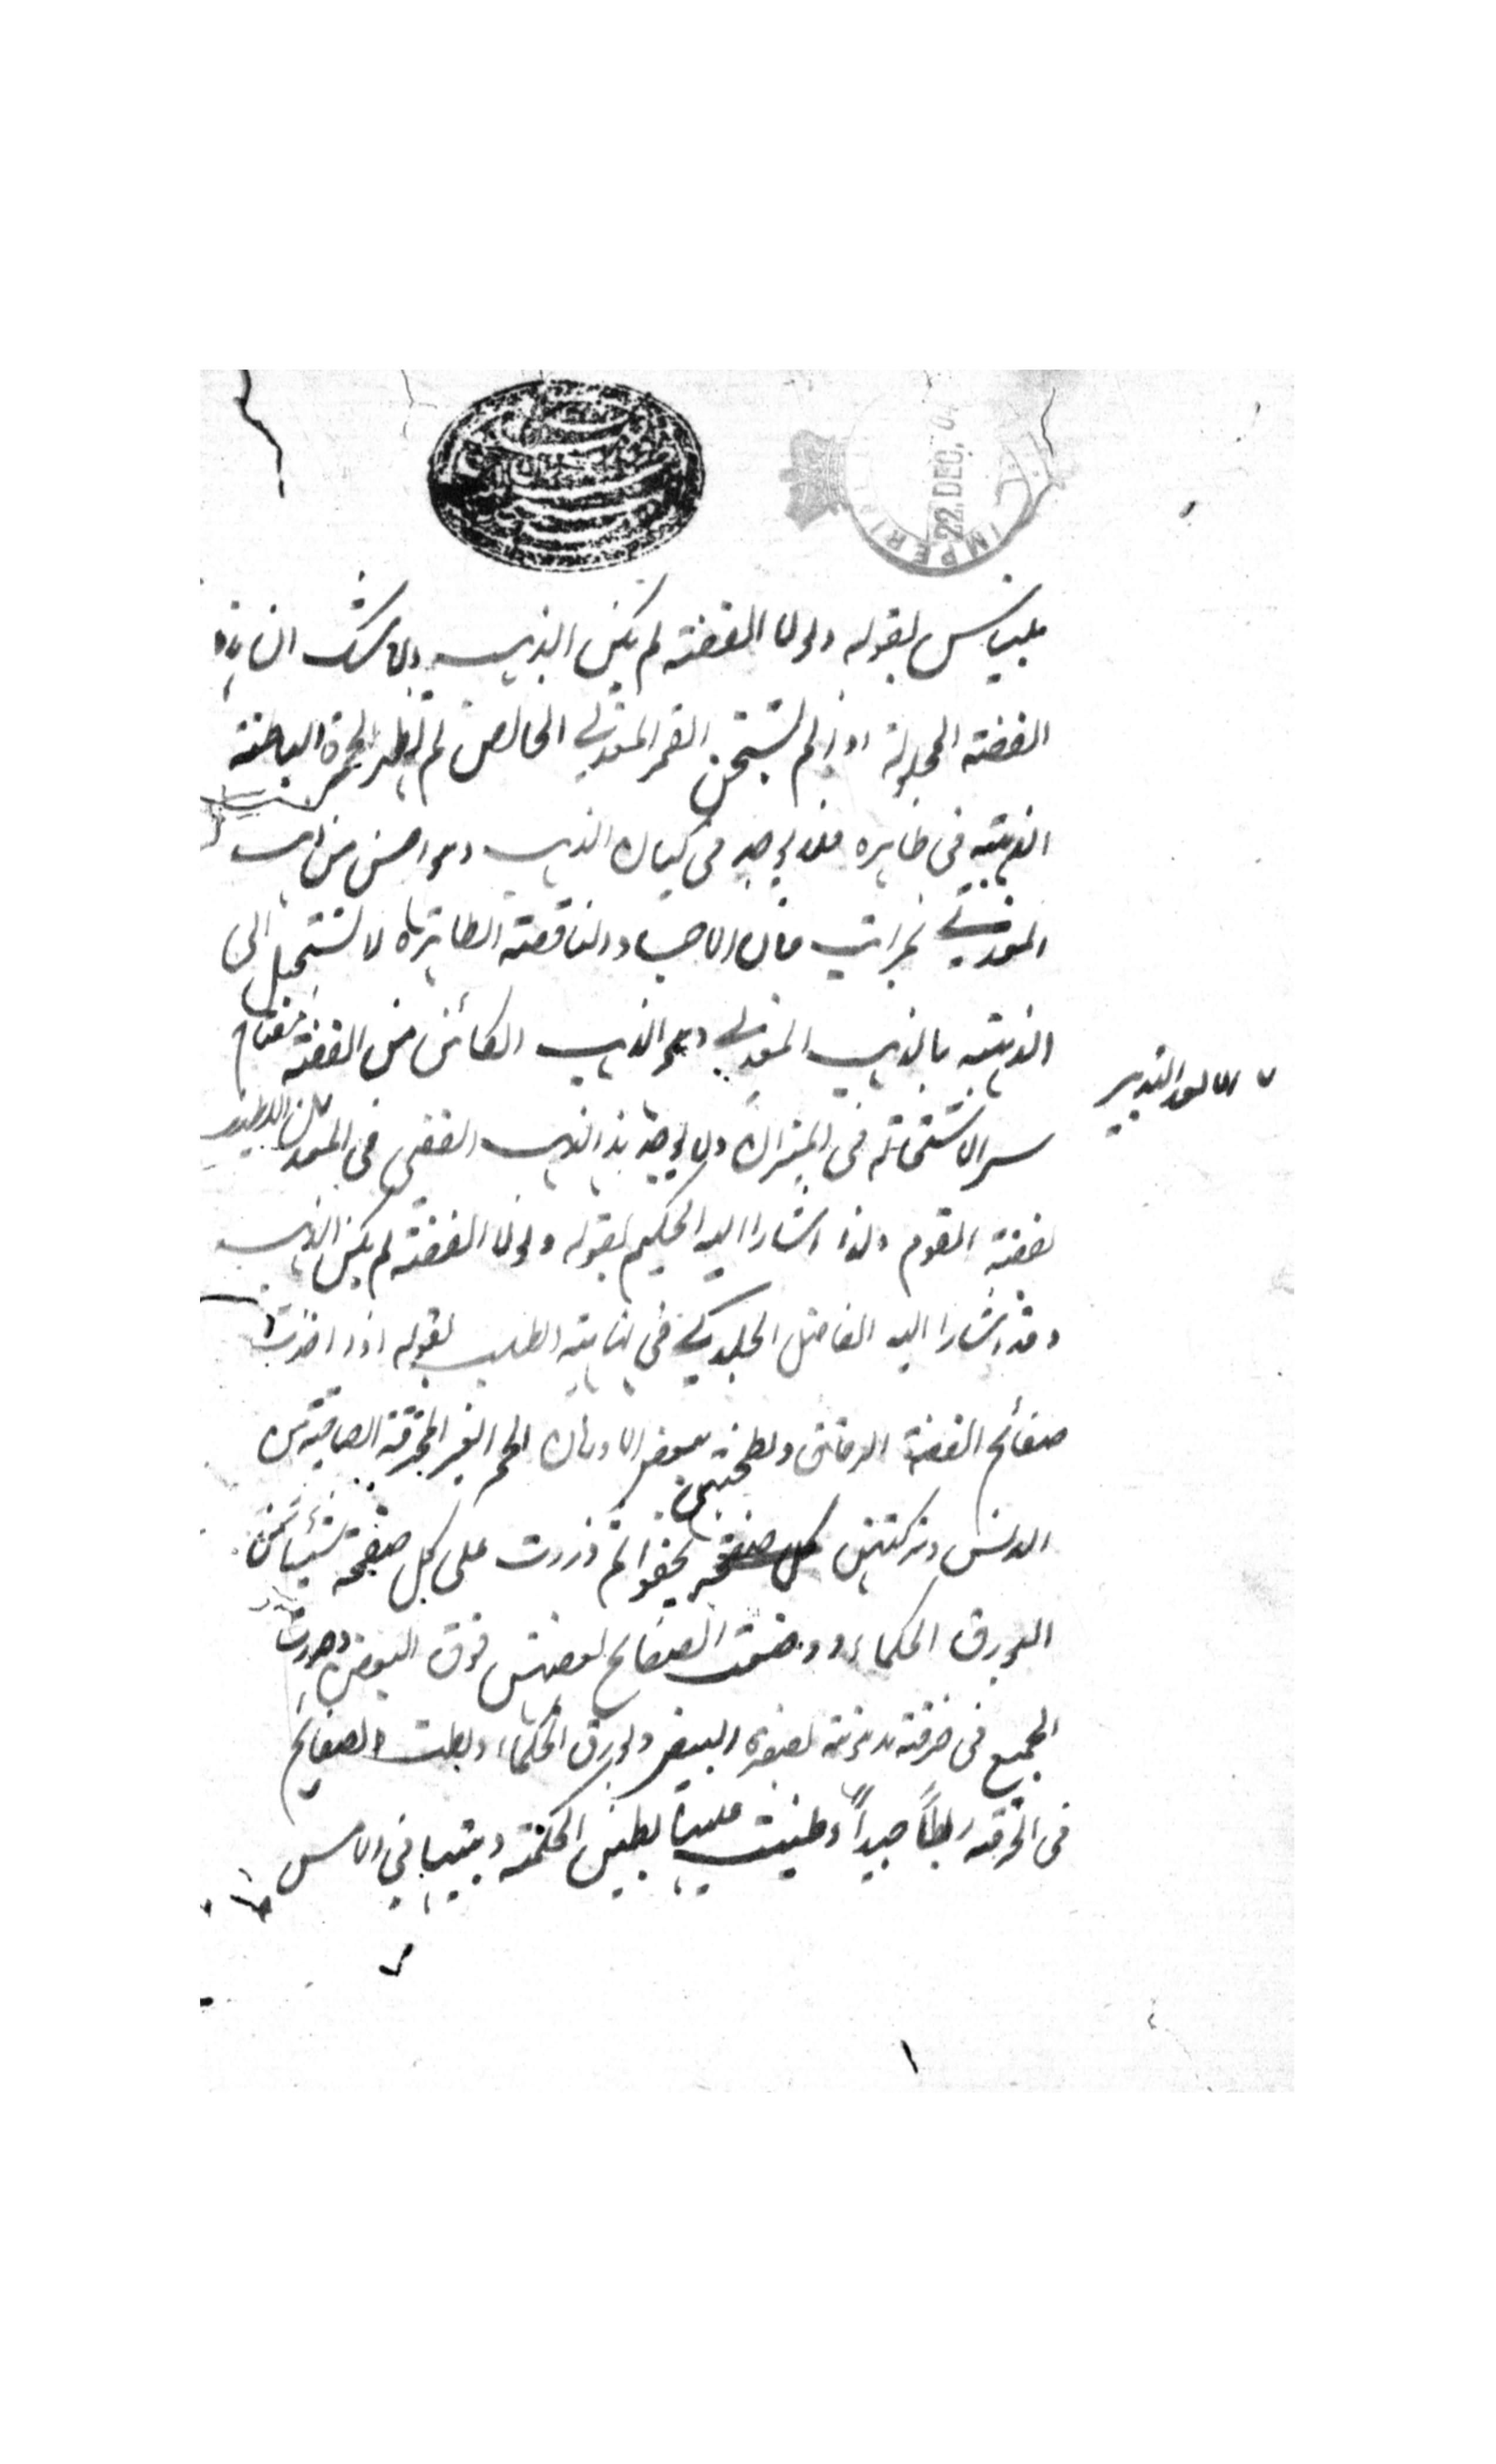 IMPERI
22.DEC.04
بليناس بقوله ولولا الفضة لم يكن الذهب ولا شك ان هذه
الفضة المحلولة اذا لم تستجن القمر المعدني الخالص لم تظهر الحمرة الباطنة
الذهبية في ظاهره فلا يوجد في كيان الذهب وهو احسن من ذهب
المعدني بمراتب فان الاجساد الناقصة الطاهرة لا تستحيل الى
الذهبية بالذهب المعدني وهو الذهب الكائن من الفضة مفتاح
سر الاستحالة في الميزان ولا يوجد هذا الذهب الفضي في المعدن
الا بعد التدبير
لفضة القوم ولذا اشار اليه الحكيم بقوله ولولا الفضة لم يكن الذهب
وقد اشار اليه الفاضل الجلدكي في نهاية الطلب بقوله اذا اخذت
صفائح الفضة الرقاق ولطختهن ببعض الادهان الحمر الغير المحرقة الصافية من
الدنس وتركتهن كل صفحة يجفوا ثم ذررت على كل صفيحة شيئا من
البورق الحكماء ووضعت الصفائح بعضهن فوق البعض وصررت
الجميع في خرقة مدهونة بصفرة البيض وبورق الحكماء وربطت الصفائح
في الخرقة ربطا جيدا وطينت عليها بطين الحكمة وبيتها في الاس